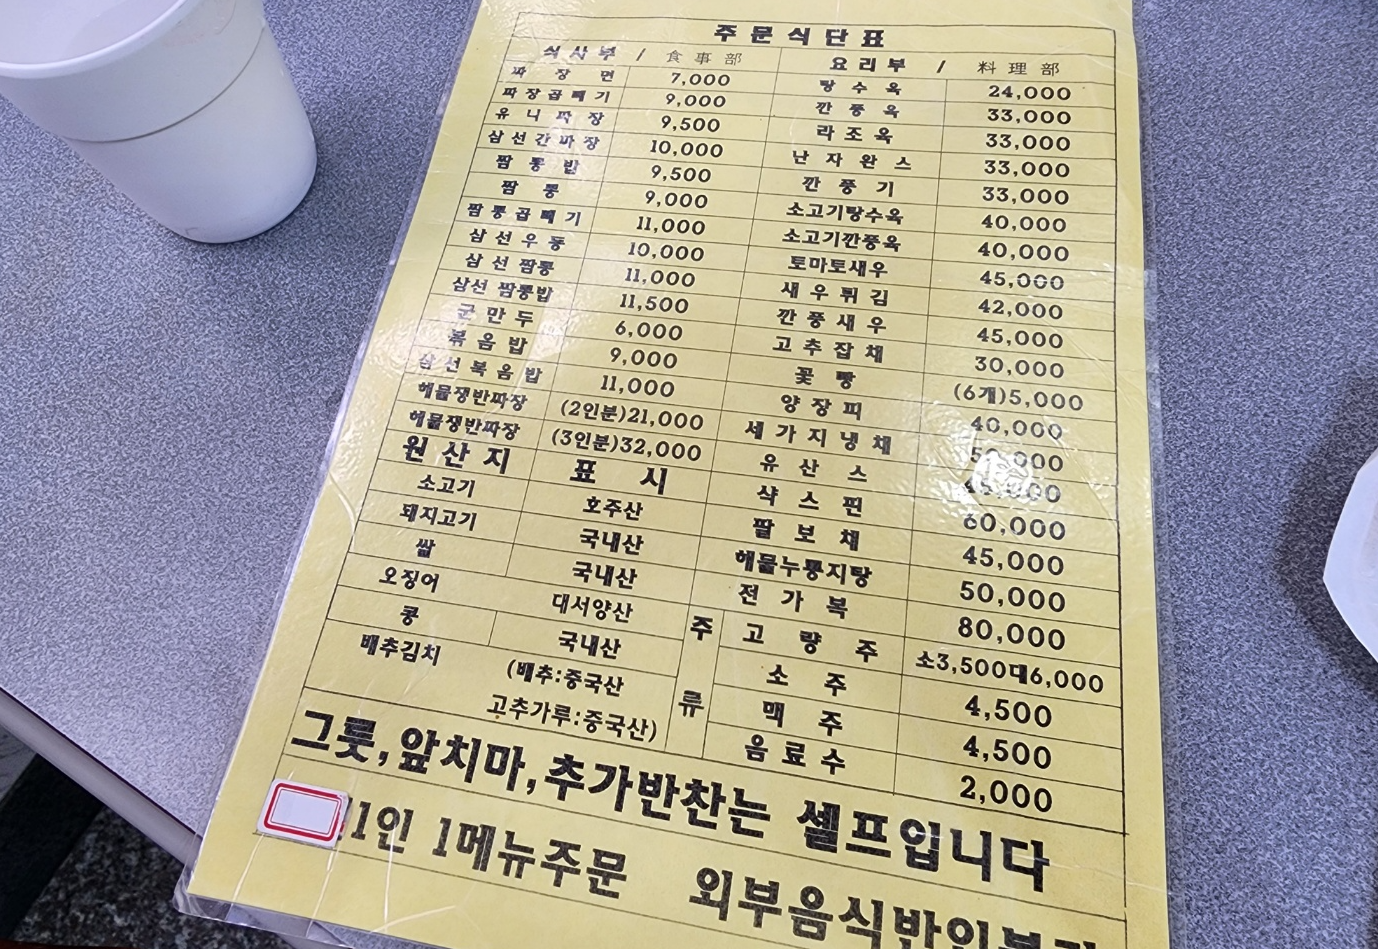 주문식단표
식사부 / 食事部
짜장면 7,000
짜장곱빼기 9,000
유니짜장 9,500
삼선간짜장 10,000
짬뽕밥 9,500
짬뽕 9,000
짬뽕곱빼기 11,000
삼선우동 10,000
삼선짬뽕 11,000
삼선짬뽕밥 11,500
군만두 6,000
볶음밥 9,000
삼선볶음밥 11,000
해물쟁반짜장 (2인분)21,000
해물쟁반짜장 (3인분)32,000
원산지 표시
소고기 호주산
돼지고기 국내산
쌀 국내산
오징어 대서양산
콩 국내산
배추김치 (배추:중국산
고추가루:중국산)
요리부 / 料理部
탕수육 24,000
깐풍육 33,000
라조육 33,000
난자완스 33,000
깐풍기 33,000
소고기탕수육 40,000
소고기깐풍육 40,000
토마토새우 45,000
새우튀김 42,000
깐풍새우 45,000
고추잡채 30,000
꽃빵 (6개)5,000
양장피 40,000
세가지냉채 50,000
유산스
샥스핀 60,000
팔보채 45,000
해물누룽지탕 50,000
전가복 80,000
주류
고량주 소3,500대6,000
소주 4,500
맥주 4,500
음료수 2,000
그릇,앞치마,추가반찬는 셀프입니다
1인 1메뉴주문 외부음식반입